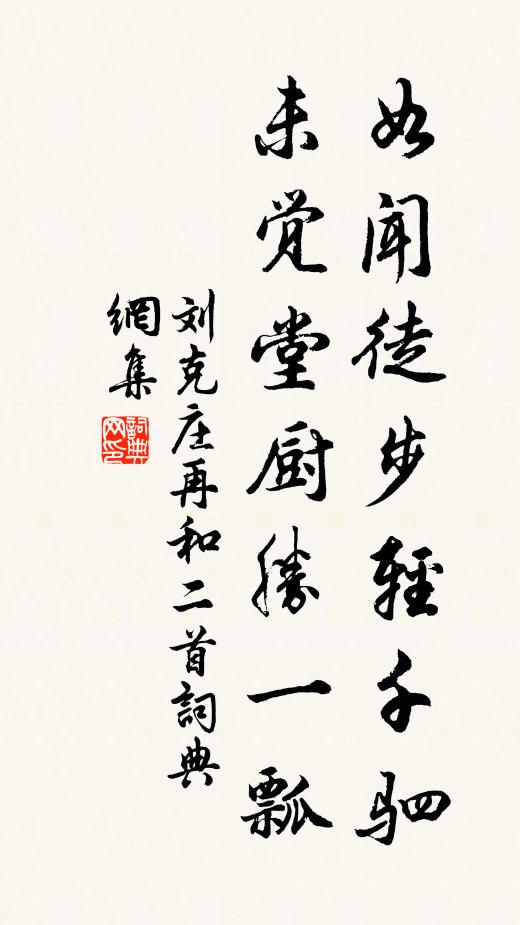 如闻徒步輕千驷
未觉堂厨勝一瓢
刘克庄再和二首詞典
網集
詞典
网印